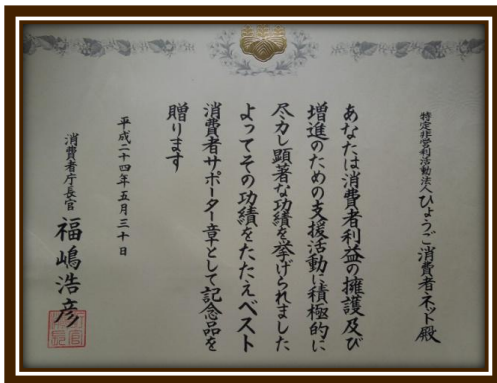 特定非営利活動法人ひょうご消費者ネット殿
あなたは消費者利益の擁護及び
増進のための支援活動に積極的に
尽力し顕著な功績を挙げられました
よってその功績をたたえベスト
消費者サポーター章として記念品を
贈ります
平成二十四年五月三十日
消費者庁長官 福嶋浩彦